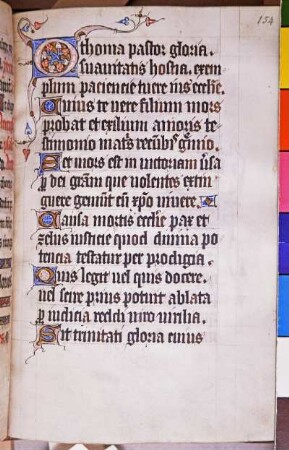 154
O thoma pastor gloria.
suavitatis hostia. exem
plum paciencie tuere iura ecclie.
Cuius te vere filium mors
probat et exilium amoris te
stimonio
Set mors est in victoriam versa
ꝑ dei gꝛam que volentes extin
guere gemunt cum xpo vivere.
Causa mortis ecclie pax et
zelus iusticie quod divina po
tencia testatur per prodigia.
Quis legit vel quis docere.
vel scire prius potuit ablata
ꝑ iudicia reddi viro virilia.
Sit trinitati gloria cuius